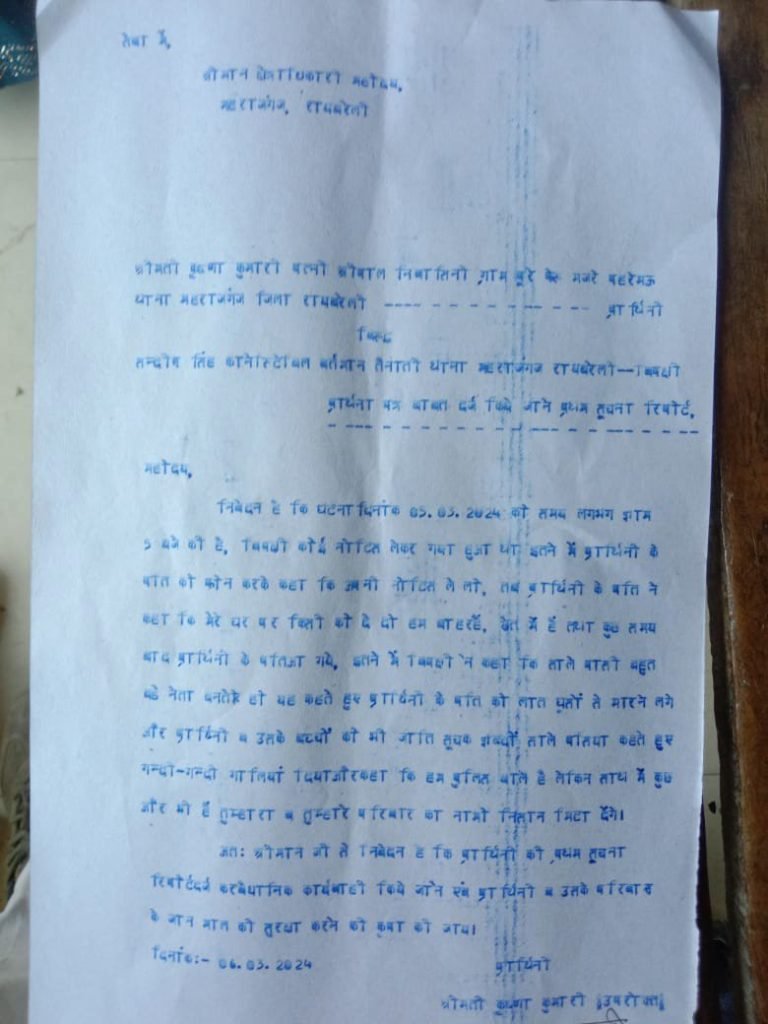 सेवा में,
श्रीमान क्षेत्राधिकारी महोदय,
महराजगंज, रायबरेली
श्रीमती कृष्णा कुमारी पत्नी श्रीपाल निवासिनी ग्राम पूरे मजरे पहरेमऊ
थाना महराजगंज जिला रायबरेली ------------------ प्रार्थिनी
विरूद्ध
सन्दीप सिंह कान्स्टेबिल वर्तमान तैनाती थाना महराजगंज रायबरेली--विपक्षी
प्रार्थना पत्र बाबत दर्ज किये जाने प्रथम सूचना रिपोर्ट,
महोदय,
निवेदन है कि घटना दिनांक 05.03.2024 की समय लगभग शाम
5 बजे की है, विपक्षी कोई नोटिस लेकर गया हुआ था इतने में प्रार्थिनी के
पति को फोन करके कहा कि अपनी नोटिस ले लो, तब प्रार्थिनी के पति ने
कहा कि मेरे घर पर किसी को दे दो हम बाहर हैं, खेत में हैं तथा कुछ समय
बाद प्रार्थिनी के पति आ गये, इतने में विपक्षी ने कहा कि साले पासी बहुत
बड़े नेता बनते हो यह कहते हुए प्रार्थिनी के पति को लात घूसों से मारने लगे
और प्रार्थिनी व उसके बच्चों को भी जाति सूचक शब्दों साले पसिया कहते हुए
गन्दी-गन्दी गालियां दिया और कहा कि हम पुलिस वाले है लेकिन साथ में कुछ
और भी हैं तुम्हारा व तुम्हारे परिवार का नामो निशान मिटा देंगे।
अतः श्रीमान जी से निवेदन है कि प्रार्थिनी की प्रथम सूचना
रिपोर्ट दर्ज कर वैधानिक कार्यवाही किये जाने एवं प्रार्थिनी व उसके परिवार
के जान माल की सुरक्षा करने की कृपा की जाय।
दिनांक:- 06.03.2024 प्रार्थिनी
श्रीमती कृष्णा कुमारी [उपरोक्त]